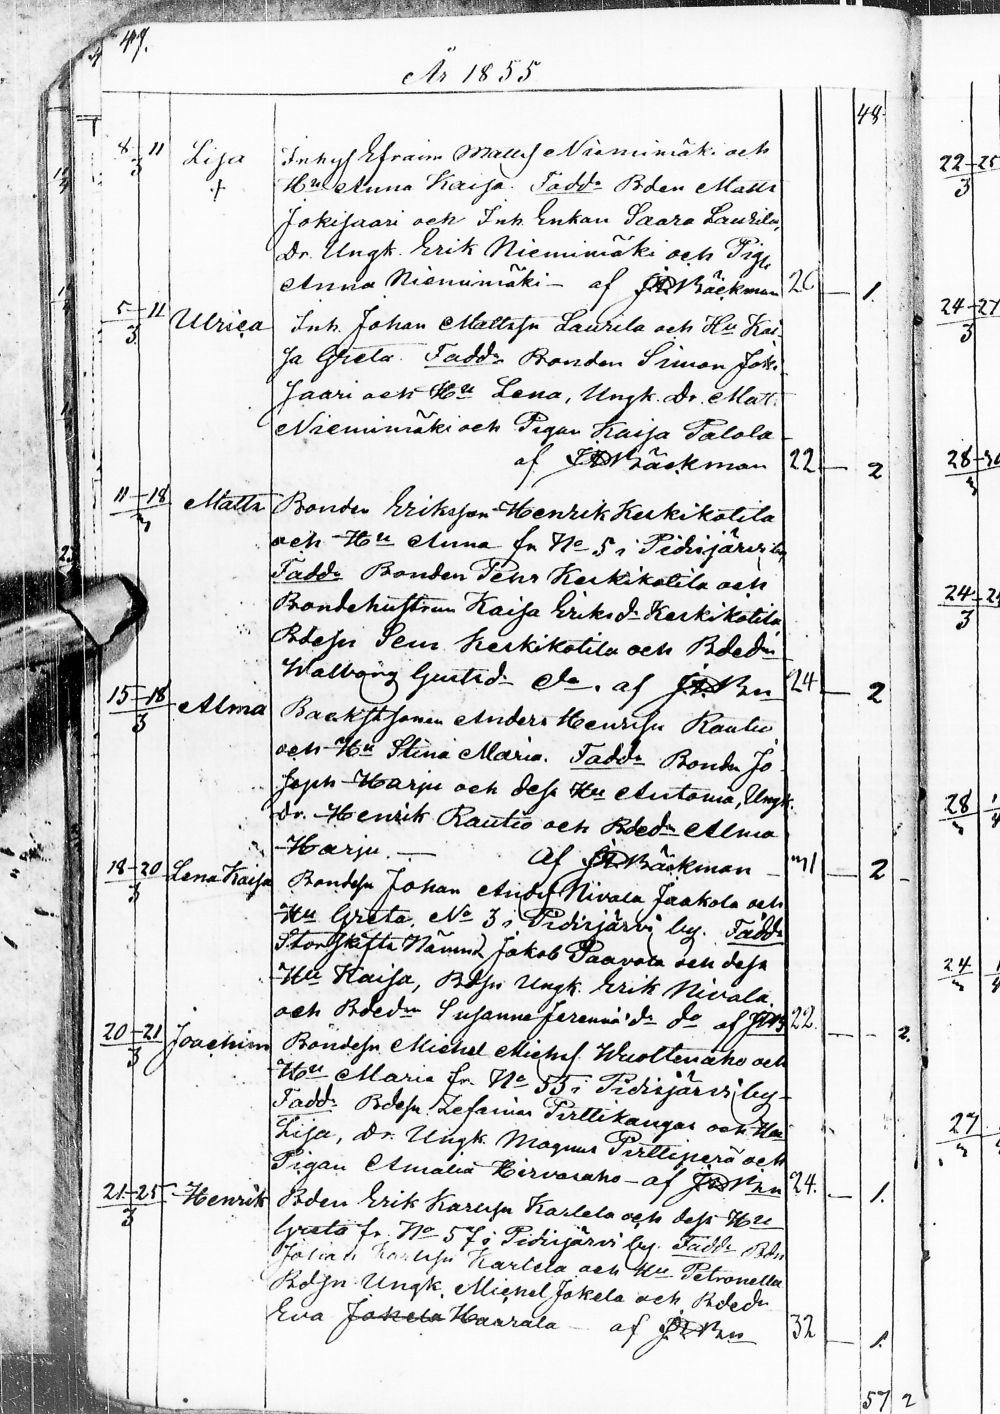 49.
År 1855
48
8–11
3
Lisa
+
Inhys Efraim Matts Nieminmäki och
Hu Anna Kaisa. Fadd. Bden Matts
Jokisaari och Inh. Enkan Saara Laurila,
Dr. Ungk. Erik Nieminmäki och Pig.
Anna Nieminmäki – af Bäckman
1.
5–11
3
Ulrica
Inh. Johan Mattssn Laurila och Hu Kai-
sa Greta. Fadd. Bonden Simon Joki
saari och Hu Lena, Ungk. Dr. Matt.
Nieminmäki och Pigan Kaisa Palola
af Bäckman 22 2
11–18
3
Matts
Bonden Eriksson Henrik Keskikotila
och Hu Anna fr. No 5 i Pidisjärvi by
Fadd. Bonden Pehr Keskikotila och
Bondehustrun Kaisa Eriksd. Keskikotila
Bdesn Keskikotila och Bdedn
Walborg Gustsd. do. af Bn 24 2
15–18
3
Alma
Backstsonen Anders Henrssn Rautio
och Hu Stina Maria. Fadd. Bonden Jo-
seph Harju och dess Hu Antonia, Ungk.
Dr. Henrik Rautio och Bdedn Alma
Harju. – Af Bäckman 2
18–20
3
Lena Kaisa
Bondesn Johan Andss Nivala Jaakola och
Hu Greta, No 3 i Pidisjärvi by. Fadd.
Storskifts Nämnd Jakob Paavola och dess
Hu Kaisa, Bdsn Ungk. Erik Nivala
och Bdedn Susanna do af 22. 2.
20–21
3
Joachim
Bondesn Michel Michels. Wuoltenaho och
Hu Maria fr. No 55 i Pidisjärvi by
Fadd. Bdesn Zefanias Pirttikangas och Hu
Lisa, Dr. Ungk. Magnus Pirttiperä och
Pigan Amalia Hirvasaho – af Bn 24. 1.
21–25
3
Henrik
Bden Erik Karlssn Karlela och dess Hu
Greta fr. No 57 i Pidisjärvi by. Fadd. Bdn
Johan Karlssn Karlela och Hu Petronella
Bdsn Ungk. Michel Jokela och Bdedn
Eva Jokela Haarala – af Bn 32 1.
57 2
22–25
3
24–27
3
28
3
24
3
28
3
24
3
27
3